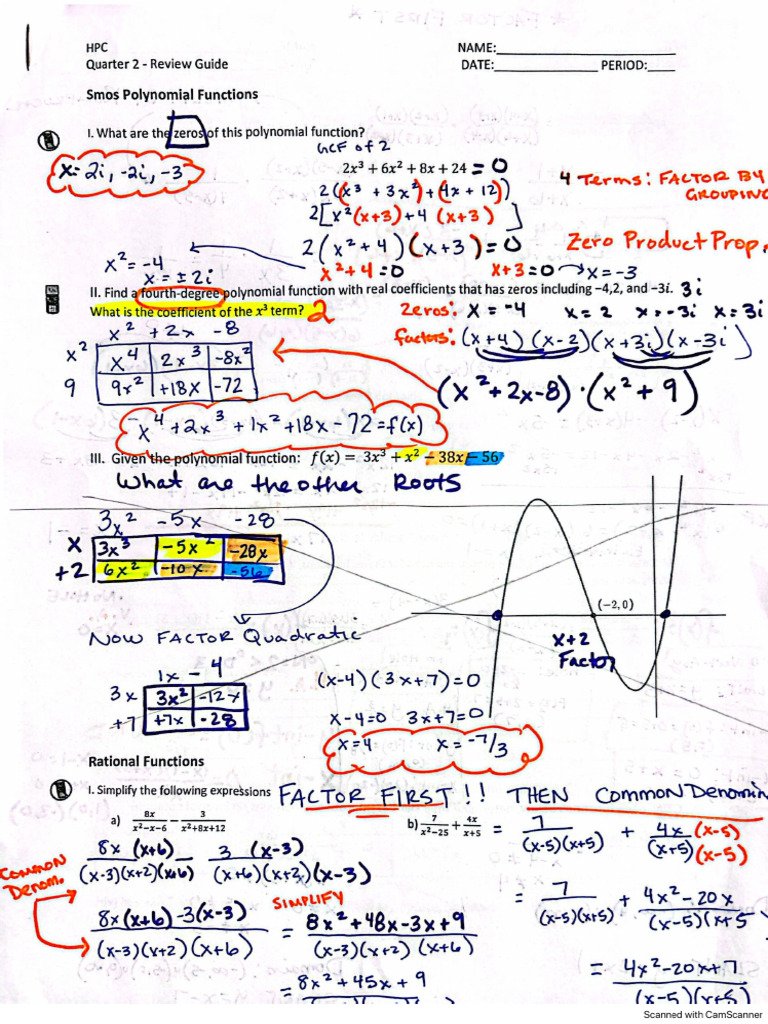 HPC
NAME:
Quarter 2 - Review Guide
DATE: PERIOD:
Smos Polynomial Functions
I. What are the zeros of this polynomial function?
GCF of 2
x= 2i, -2i, -3
2x³ + 6x² + 8x + 24 = 0
2((x³ + 3x²) + (4x + 12))
4 Terms: FACTOR BY GROUPING
2[x²(x+3) + 4 (x+3)]
2(x²+4)(x+3) = 0
Zero Product Prop.
x² = -4
x = ± 2i
x²+4=0
x+3=0 → x = -3
II. Find a fourth-degree polynomial function with real coefficients that has zeros including −4,2, and −3i. 3i
What is the coefficient of the x³ term? 2
zeros: x = -4 x = 2 x = -3i x = 3i
factors: (x+4) (x-2)(x+3i)(x-3i)
x² + 2x - 8
x² x⁴ 2x³ -8x²
9 9x² +18x -72
(x²+2x-8)·(x²+9)
x⁴ +2x³ +1x² +18x -72 = f(x)
III. Given the polynomial function: f(x) = 3x³ + x² − 38x − 56
What are the other Roots
3x² -5x -28
x 3x³ -5x² -28x
+2 6x² -10x -56
(−2,0)
x+2
Factor
NOW FACTOR Quadratic
1x - 4
3x 3x² -12x
+7 +7x -28
(x-4)(3x+7)=0
x-4=0 3x+7=0
x=4 x= -7/3
Rational Functions
I. Simplify the following expressions
FACTOR FIRST!! THEN COMMON Denomin
a) 8x/(x²−x−6) − 3/(x²+8x+12)
b) 7/(x²−25) + 4x/(x+5) = 7/((x-5)(x+5)) + 4x (x-5)/((x+5)(x-5))
8x (x+6)/((x-3)(x+2)(x+6)) − 3 (x-3)/((x+6)(x+2)(x-3))
COMMON
Denom.
= 7/((x-5)(x+5)) + 4x²-20x/((x-5)(x+5
SIMPLIFY
8x(x+6) -3(x-3)/((x-3)(x+2)(x+6)) = 8x²+48x-3x+9/((x-3)(x+2)(x+6))
= 4x²-20x+7/((x-5)(x+5)
= 8x² + 45x + 9
Scanned with CamScanner